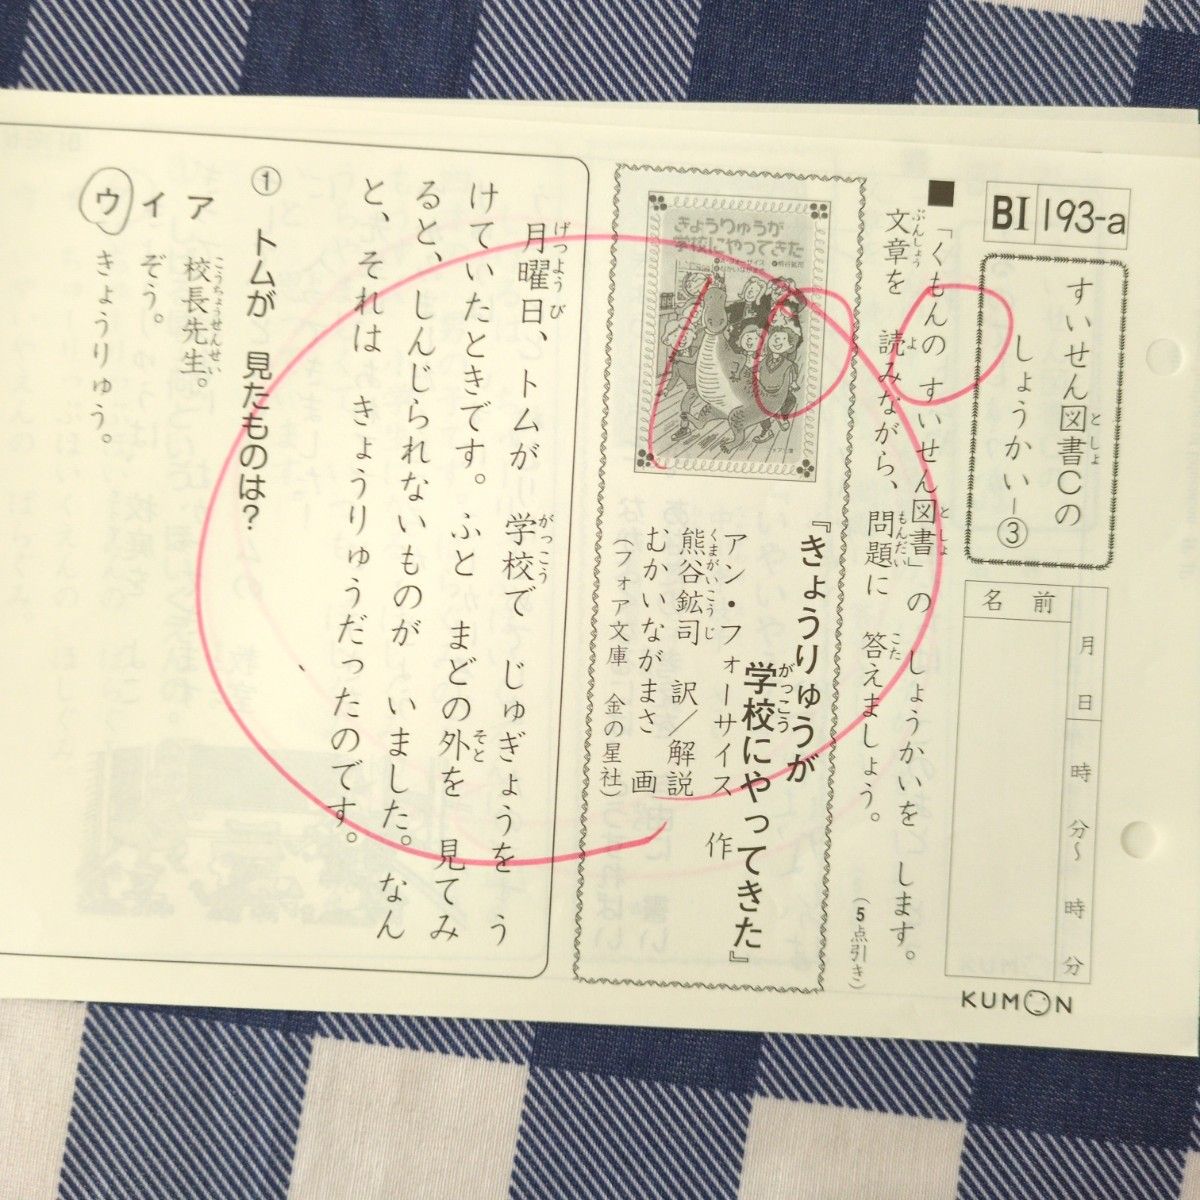 BI 193-a
すいせん図書Cの
しょうかい-③
月 日 時 分～ 時 分
名前
KUMON
■「くもんの すいせん図書」の しょうかいを します。
文章を 読みながら、問題に 答えましょう。
(5点引き)
きょうりゅうが
学校にやってきた
『きょうりゅうが
学校にやってきた』
アン・フォーサイス 作
熊谷鉱司 訳／解説
むかいながまさ 画
(フォア文庫 金の星社)
月曜日、トムが 学校で じゅぎょうを う
けていたときです。ふと まどの外を 見てみ
ると、しんじられないものが いました。なん
と、それは きょうりゅうだったのです。
① トムが 見たものは？
ア 校長先生。
イ ぞう。
ウ きょうりゅう。
100